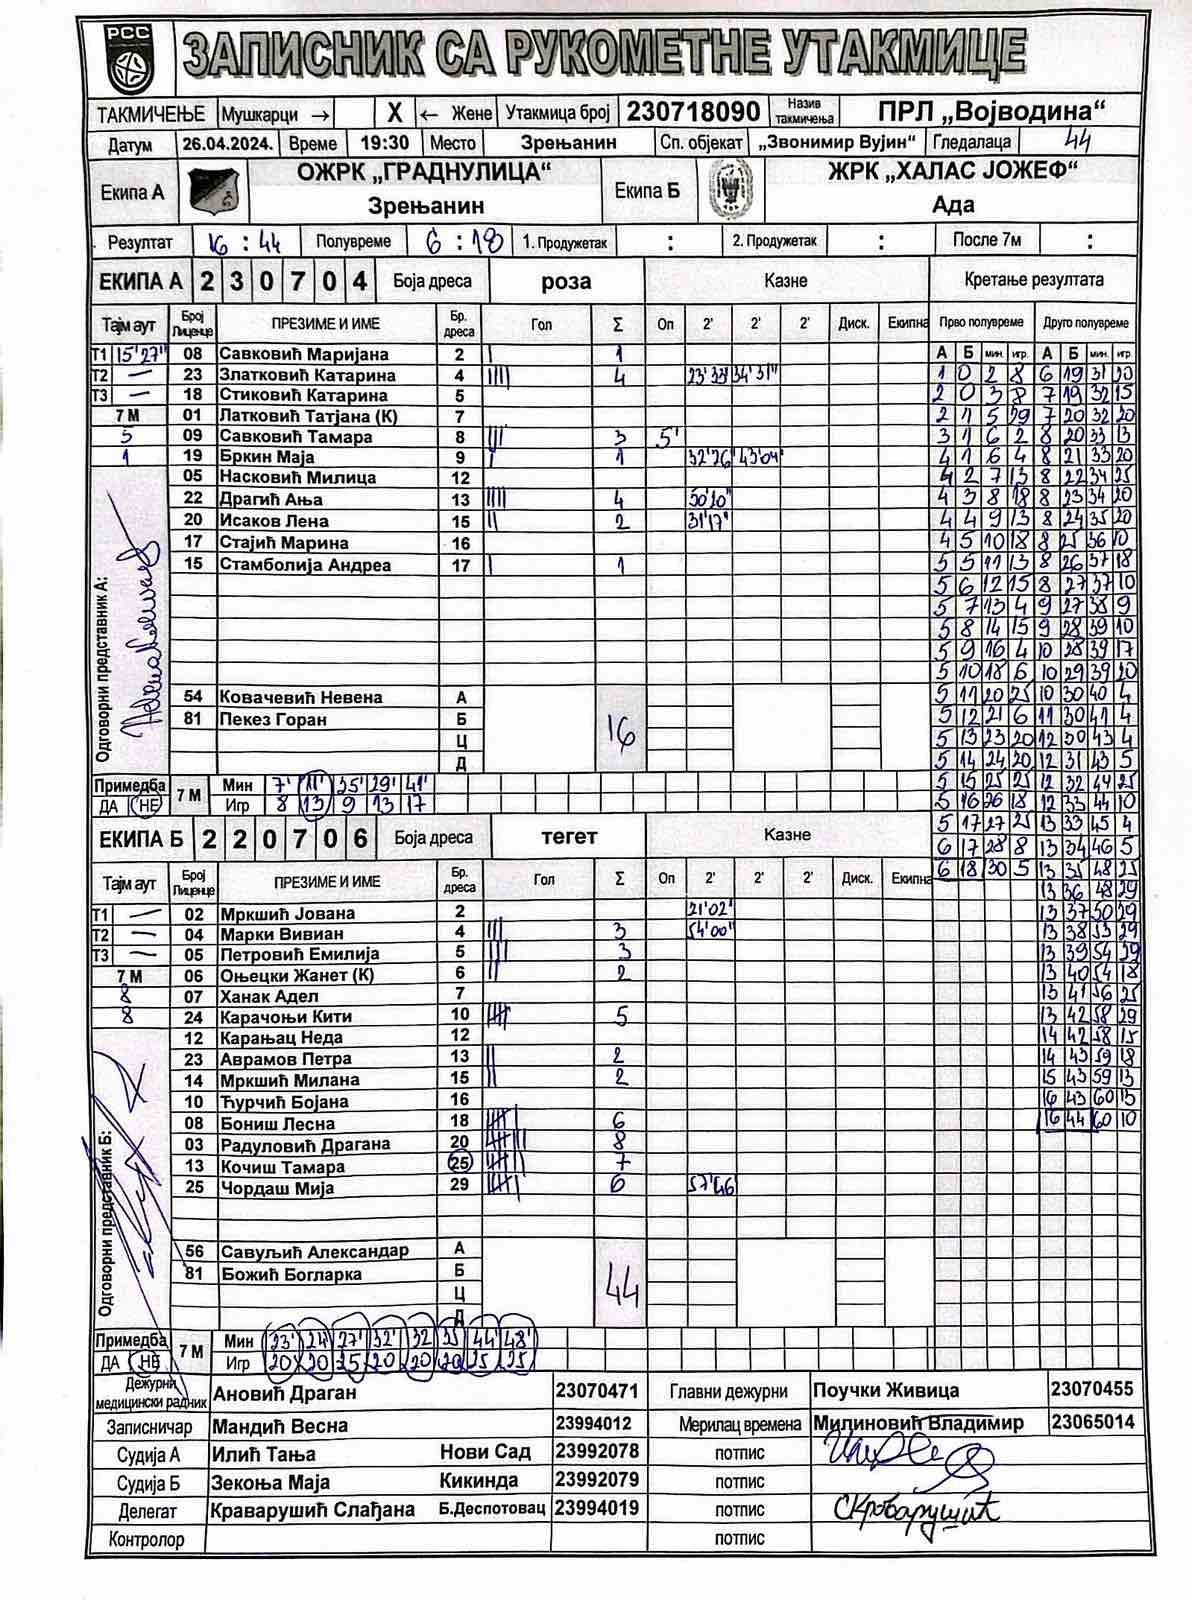 РСС
ЗАПИСНИК СА РУКОМЕТНЕ УТАКМИЦЕ
ТАКМИЧЕЊЕ Мушкарци → X ← Жене Утакмица број 230718090 Назив такмичења ПРЛ „Војводина“
Датум 26.04.2024. Време 19:30 Место Зрењанин Сп. објекат „Звонимир Вујин“ Гледалаца 44
Екипа А ОЖРК „ГРАДНУЛИЦА“ Зрењанин Екипа Б ЖРК „ХАЛАС ЈОЖЕФ“ Ада
Резултат 16 : 44 Полувреме 6 : 18 1. Продужетак : 2. Продужетак : После 7м :
ЕКИПА А 2 3 0 7 0 4 Боја дреса роза Казне Кретање резултата
Тајм аут Број Лиценце ПРЕЗИМЕ И ИМЕ Бр. дреса Гол Σ Оп 2' 2' 2' Диск. Екипна Прво полувреме Друго полувреме
Т1 15'27" 08 Савковић Маријана 2 | 1 А Б мин. игр. А Б мин. игр
Т2 — 23 Златковић Катарина 4 |||| 4 23'33" 34'31" 1 0 2 8 6 19 31 20
Т3 — 18 Стиковић Катарина 5 2 0 3 8 7 19 32 15
7 М 01 Латковић Татјана (К) 7 2 1 5 29 7 20 32 20
5 09 Савковић Тамара 8 ||| 3 5' 3 1 6 2 8 20 33 13
1 19 Бркин Маја 9 | 1 32'26 43'04" 4 1 6 4 8 21 33 20
05 Насковић Милица 12 4 2 7 13 8 22 34 25
22 Драгић Ања 13 |||| 4 50'20" 4 3 8 18 8 23 34 20
20 Исаков Лена 15 || 2 31'17" 4 4 9 13 8 24 35 20
17 Стајић Марина 16 4 5 10 18 8 25 36 10
15 Стамболија Андреа 17 | 1 5 5 11 13 8 26 37 18
5 6 12 15 8 27 37 10
5 7 13 4 9 27 38 9
5 8 14 15 9 28 39 10
5 9 16 4 10 28 39 17
5 10 18 6 10 29 39 20
54 Ковачевић Невена А 5 11 20 25 10 30 40 4
81 Пекез Горан Б 16 5 12 21 6 11 30 41 4
Ц 5 13 23 20 12 30 43 4
Д 5 14 24 20 12 31 43 5
Одговорни представник А:
Примедба ДА НЕ 7 М Мин 7' 11' 25' 29' 41' 5 15 25 25 12 32 44 25
Игр 8 13 9 13 17 5 16 26 18 12 33 44 10
ЕКИПА Б 2 2 0 7 0 6 Боја дреса тегет Казне 5 17 27 25 13 33 45 4
6 17 28 8 13 34 46 5
Тајм аут Број Лиценце ПРЕЗИМЕ И ИМЕ Бр. дреса Гол Σ Оп 2' 2' 2' Диск. Екипна 6 18 30 5 13 35 48 25
13 36 48 29
Т1 — 02 Мркшић Јована 2 21'02" 13 37 50 29
Т2 — 04 Марки Вивиан 4 ||| 3 54'00" 13 38 53 29
Т3 — 05 Петровић Емилија 5 ||| 3 13 39 54 29
7 М 06 Оњецки Жанет (К) 6 || 2 13 40 54 18
8 07 Ханак Адел 7 13 41 56 25
8 24 Карачоњи Кити 10 5 13 42 58 29
12 Карањац Неда 12 14 42 58 15
23 Аврамов Петра 13 || 2 14 43 59 18
14 Мркшић Милана 15 || 2 15 43 59 13
10 Ћурчић Бојана 16 16 43 60 15
08 Бониш Лесна 18 6 16 44 60 10
03 Радуловић Драгана 20 8
13 Кочиш Тамара 25 7
25 Чордаш Мија 29 6 57'46
56 Савуљић Александар А
81 Божић Богларка Б 44
Ц
Д
Одговорни представник Б:
Примедба ДА НЕ 7 М Мин 23' 24' 27' 32' 32 35 44' 48'
Игр 20 20 25 20 20 20 25 25
Дежурни медицински радник Ановић Драган 23070471 Главни дежурни Поучки Живица 23070455
Записничар Мандић Весна 23994012 Мерилац времена Милиновић Владимир 23065014
Судија А Илић Тања Нови Сад 23992078 потпис
Судија Б Зекоња Маја Кикинда 23992079 потпис
Делегат Краварушић Слађана Б.Деспотовац 23994019 потпис
Контролор потпис